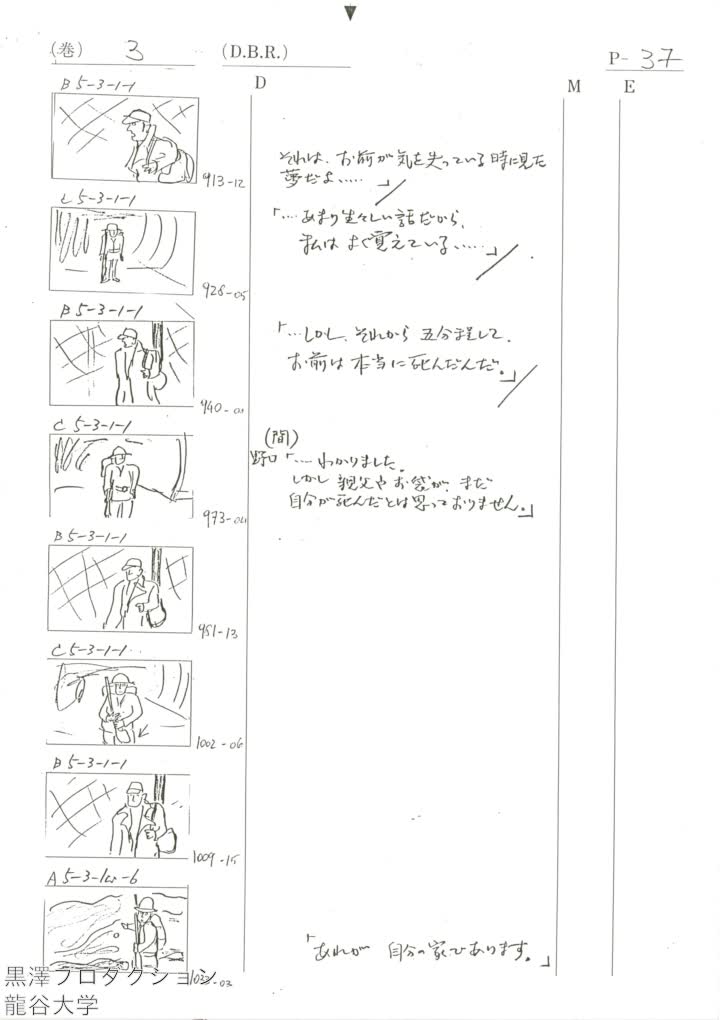 (巻) 3 (D.B.R.) P- 37
D M E
B 5-3-1-1
913-12
それは、お前が気を失っている時に見た
夢だよ……」
5-3-1-1
928-05
「…あまり生々しい話だから、
私は よく覚えている……」
B 5-3-1-1
940-01
「…しかし、それから 五分程して、
お前は 本当に死んだんだ。」
C 5-3-1-1
(間)
野口「…… わかりました。
しかし 親父やお袋が、まだ
自分が死んだとは思っておりません。」
B 5-3-1-1
951-13
C 5-3-1-1
1002-06
B 5-3-1-1
1009-15
A 5-3-1
「あれが 自分の家であります。」
黒澤プロダクション
龍谷大学